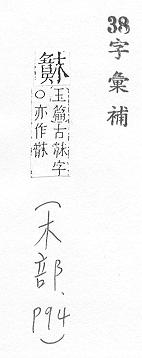 38
字彙補
玉篇古字
○亦作
(木部、
P94)